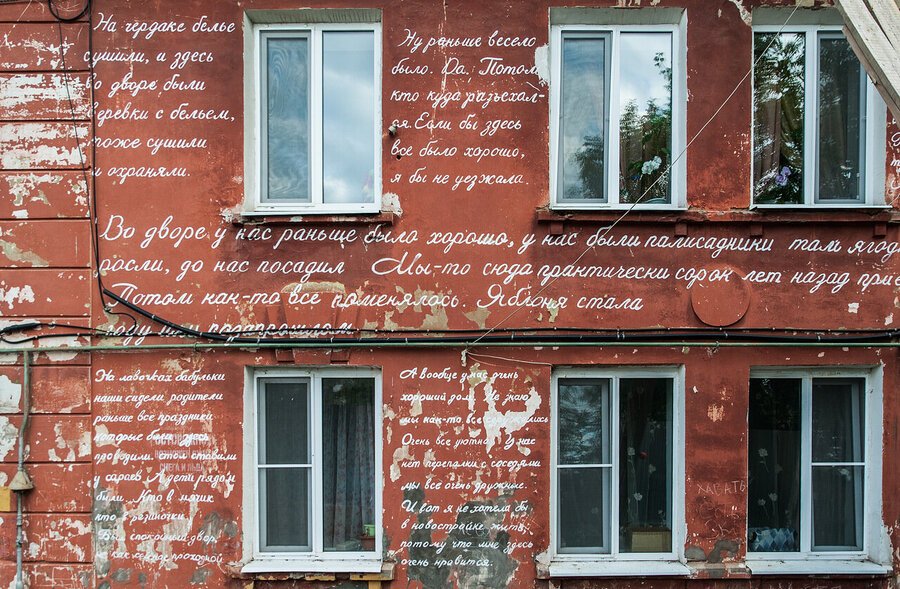 На чердаке белье
сушили, и здесь
во дворе были
веревки с бельем,
тоже сушили
и охраняли.
Ну раньше весело
было. Да. Потом
кто куда разъехал-
ся. Если бы здесь
все было хорошо,
я бы не уезжала.
Во дворе у нас раньше было хорошо, у нас были палисадники там ягод
росли, до нас посадил Мы-то сюда практически сорок лет назад прие
Потом как-то все поменялось. Яблоня стала
году или позапрошлом
На лавочках бабульки
наши сидели, родители
раньше все праздники
которые были здесь
проводили, стол ставили
у сараев. А дети рядом
были. Кто в мячик
кто в резиночки.
Был спокойный двор,
не как сейчас проходной
А вообще у нас очень
хороший дом. Не знаю
мы как-то все сдружились
Очень все уютно. У нас
нет перепалки с соседями
мы все очень дружные.
И вот я не хотела бы
в новостройке жить,
потому что мне здесь
очень нравится.
СНЕГА И ЛЬДА
ХАГАТЬ